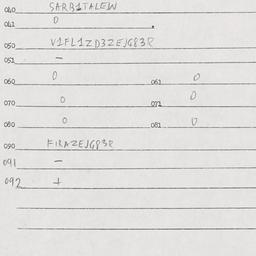 040 SARB1TALEW
041 0
050 V1FL1ZD3ZEJG83R
051 –
060 0 061 0
070 0 071 0
080 0 081 0
090 FIRAZEJG83R
091 –
092 +